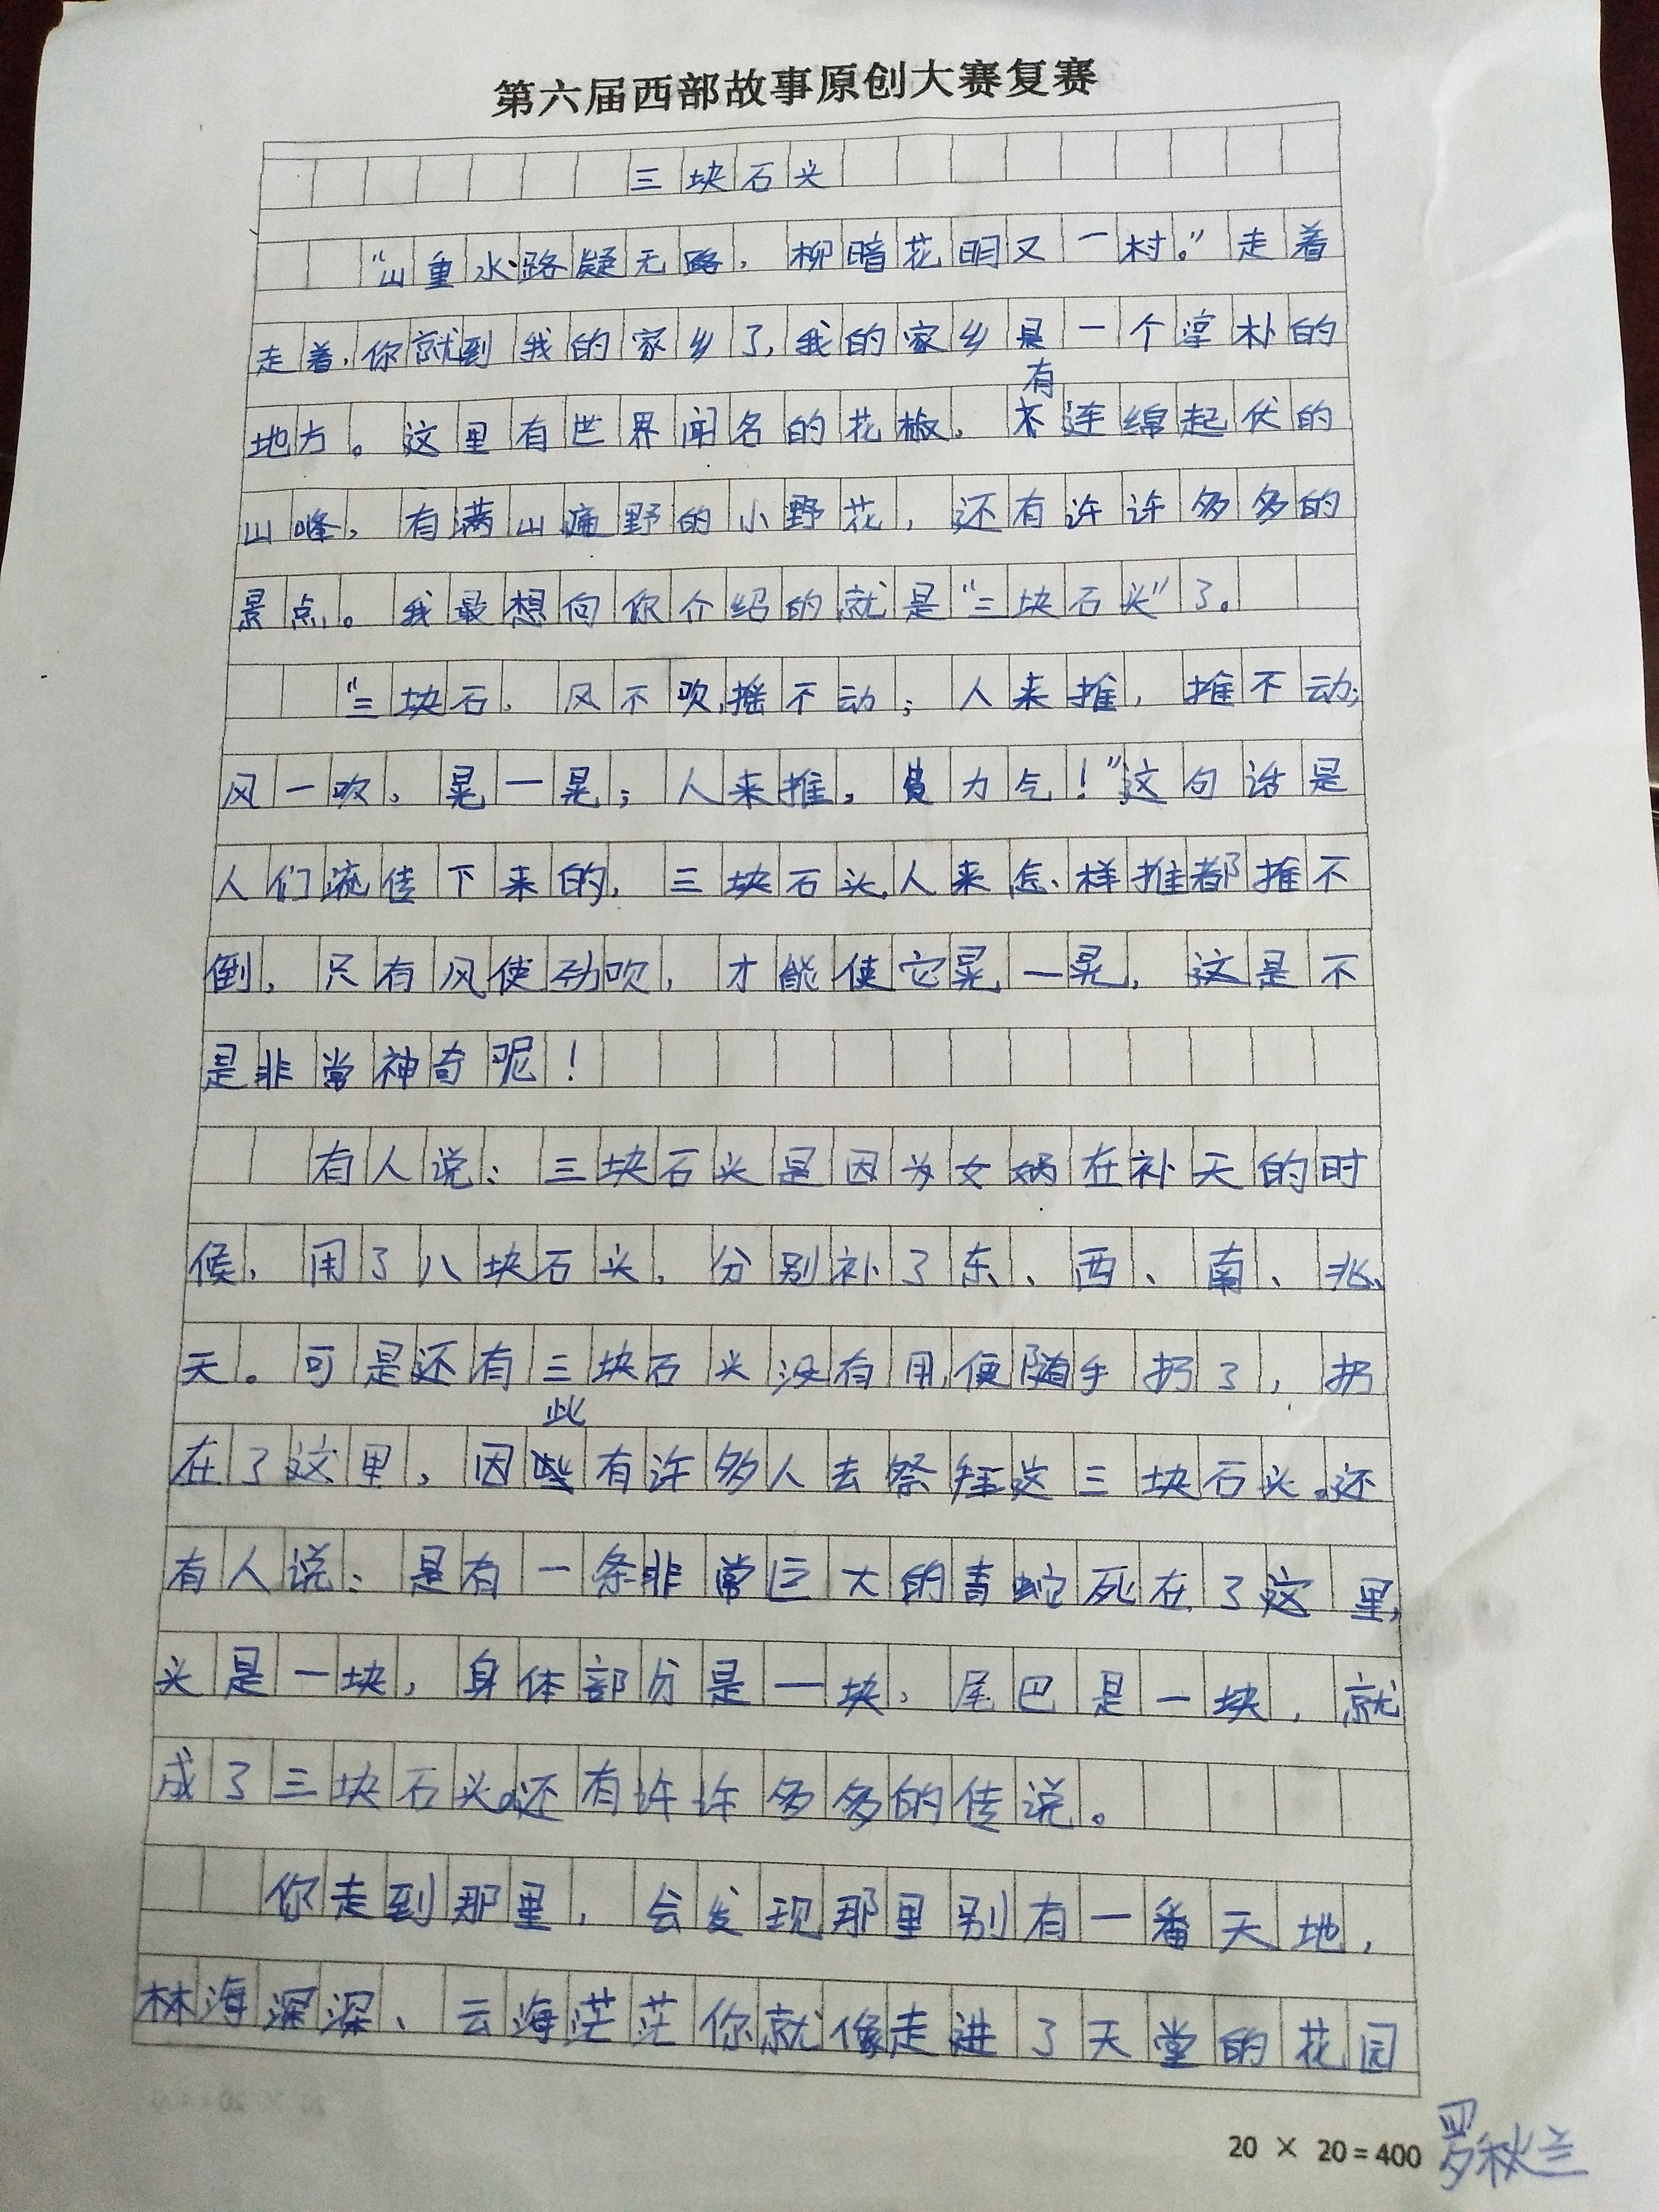 第六届西部故事原创大赛复赛
三块石头
“山重水路疑无路，柳暗花明又一村。”走着
走着，你就到我的家乡了，我的家乡是一个淳朴的
地方。这里有世界闻名的花椒，有连绵起伏的
山峰，有满山遍野的小野花，还有许许多多的
景点。我最想向你介绍的就是“三块石头”了。
“三块石，风不吹，摇不动；人来推，推不动；
风一吹，晃一晃；人来推，费力气！”这句话是
人们流传下来的，三块石头，人来怎样推都推不
倒，只有风使劲吹，才能使它晃一晃，这是不
是非常神奇呢！
有人说：三块石头是因为女娲在补天的时
候，用了八块石头，分别补了东、西、南、北、
天。可是还有三块石头没有用，便随手扔了，扔
在了这里，因此有许多人去祭拜这三块石头。还
有人说：是有一条非常巨大的青蛇死在了这里，
头是一块，身体部分是一块，尾巴是一块，就
成了三块石头。还有许许多多的传说。
你走到那里，会发现那里别有一番天地，
林海深深、云海茫茫你就像走进了天堂的花园
20 × 20=400 罗秋兰